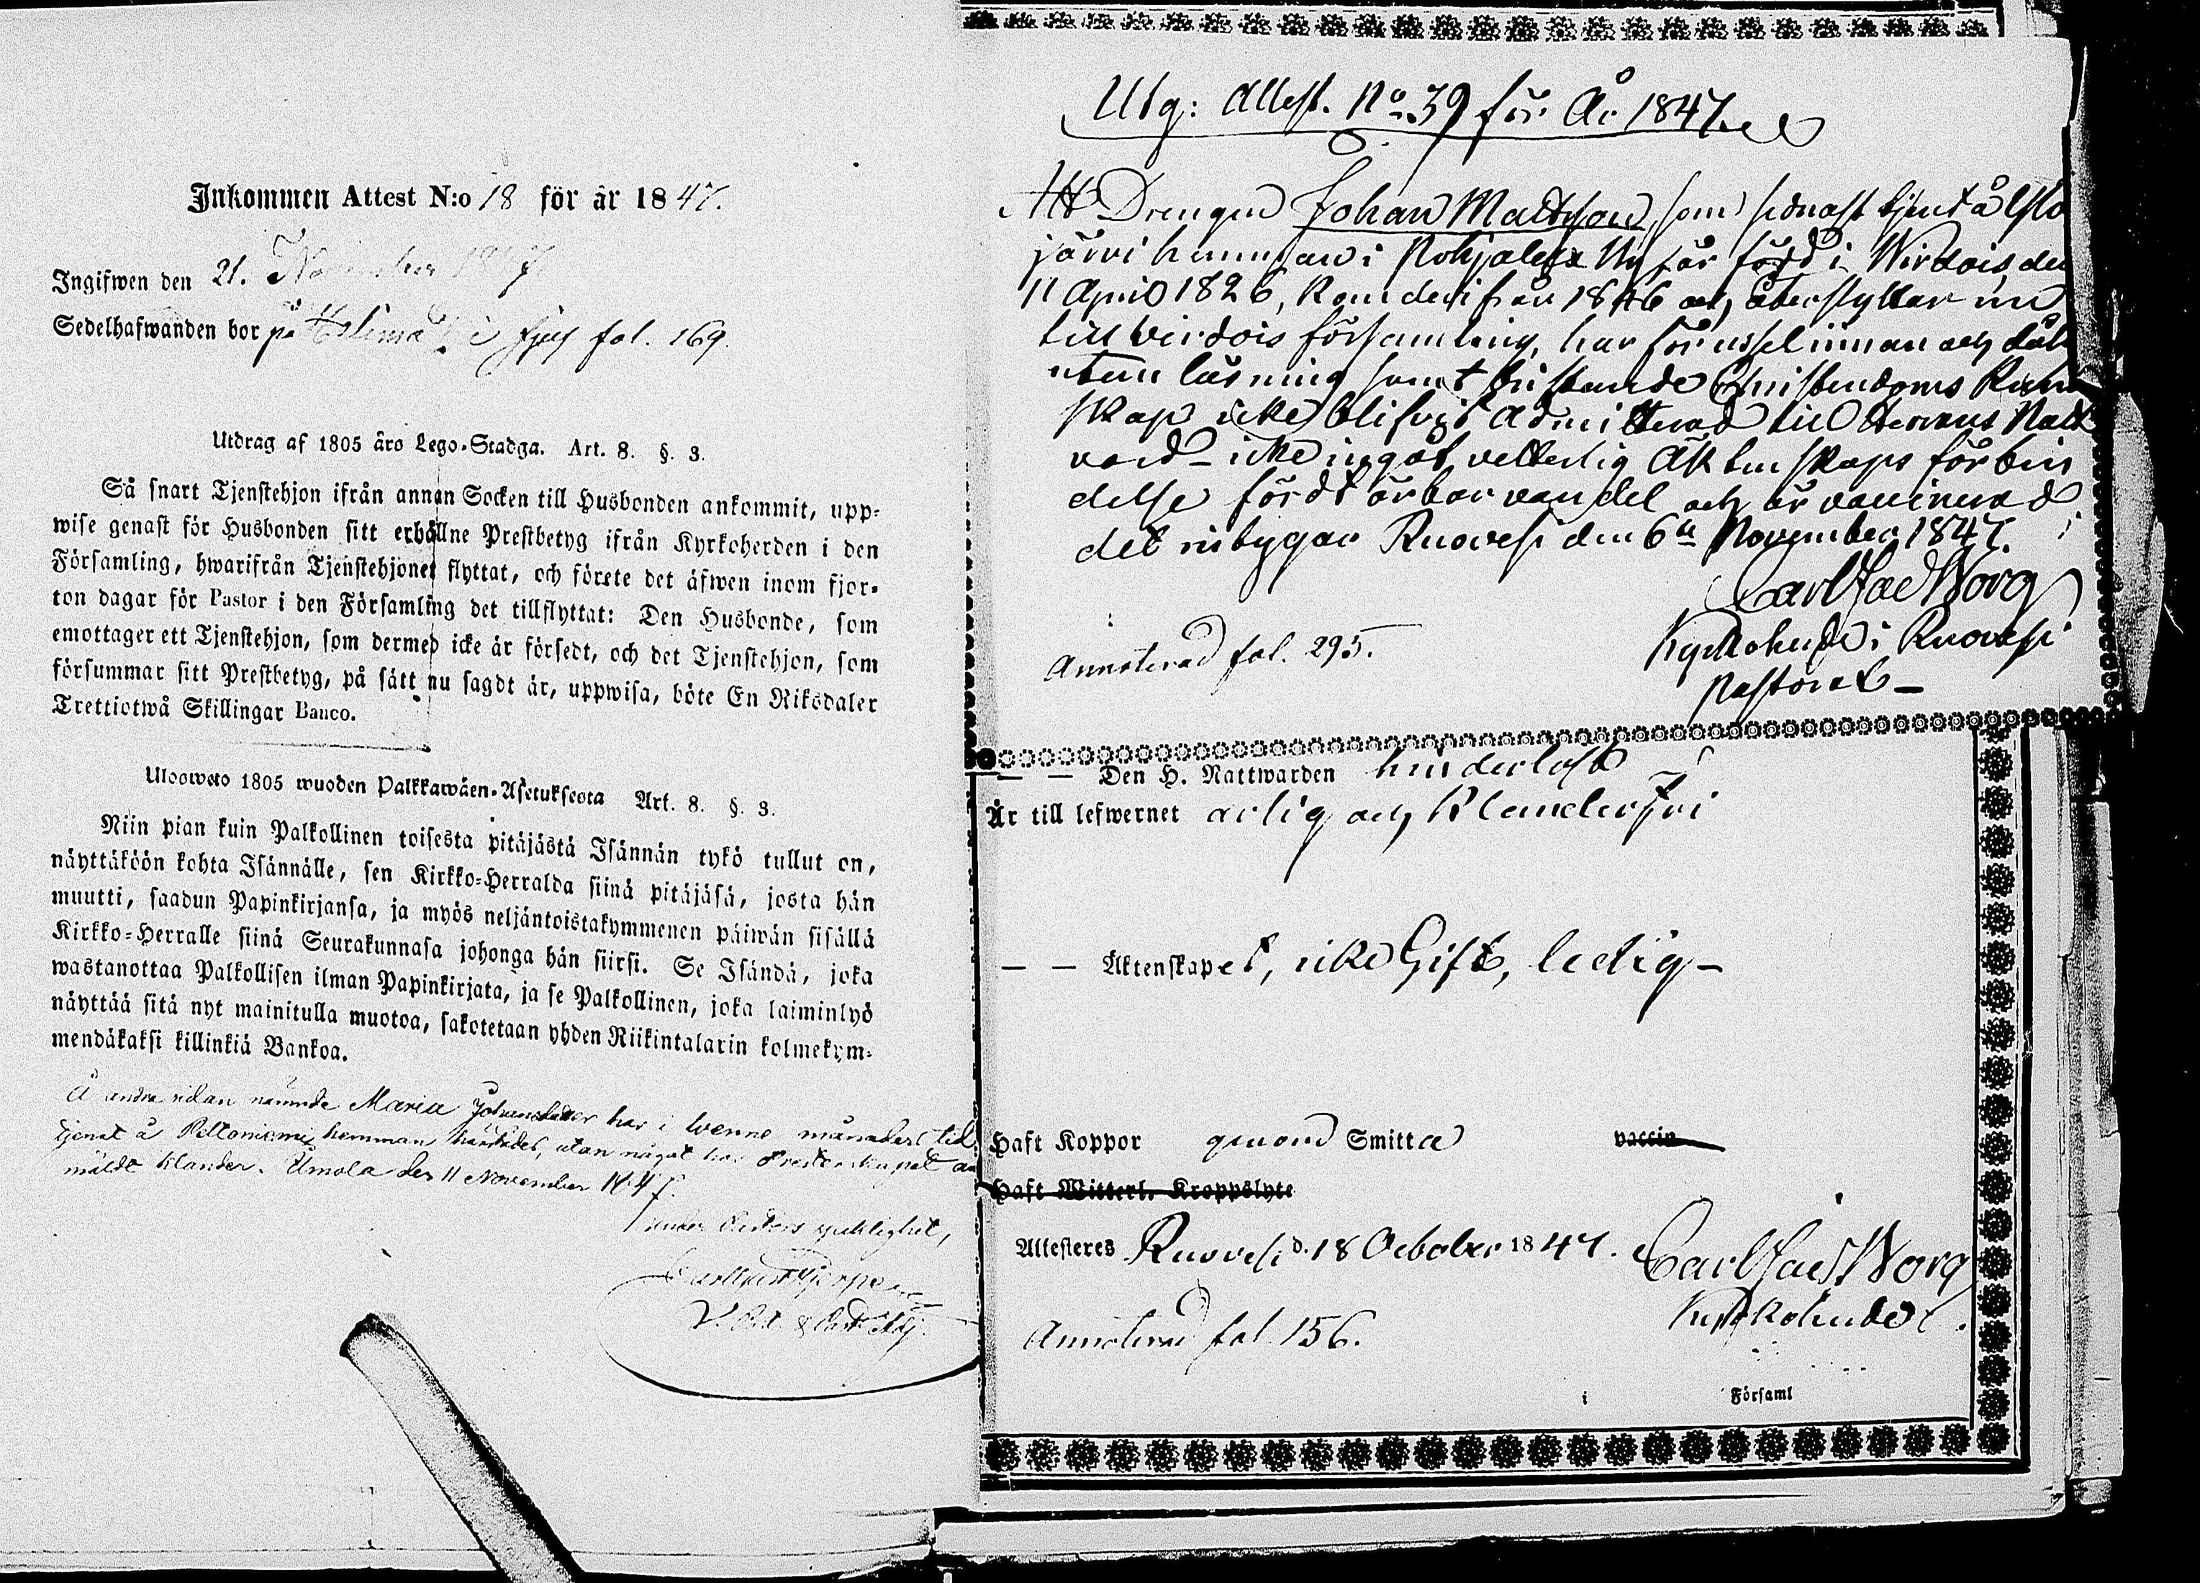 Inkommen Attest N:o 18 för år 1847.
Ingifwen den 21. November 1847
Sedelhafwanden bor på fol. 169.
Utdrag af 1805 års Lego-Stadga. Art. 8. §. 3.
Så snart Tjenstehjon ifrån annan Socken till Husbonden ankommit, upp-
wise genast för Husbonden sitt erhållne Prestbetyg ifrån Kyrkoherden i den
Församling, hwarifrån Tjenstehjonet flyttat, och förete det äfwen inom fjor-
ton dagar för Pastor i den Församling det tillflyttat: Den Husbonde, som
emottager ett Tjenstehjon, som dermed icke är försedt, och det Tjenstehjon, som
försummar sitt Prestbetyg, på sätt nu sagdt är, uppwisa, böte En Riksdaler
Trettiotwå Skillingar Banco.
Ulosweto 1805 wuoden Palkkawäen-Asetuksesta Art. 8. §. 3.
Niin pian kuin Palkollinen toisesta pitäjästä Isännän tykö tullut on,
näyttäköön kohta Isännälle, sen Kirkko-Herralda siinä pitäjäsä, josta hän
muutti, saadun Papinkirjansa, ja myös neljäntoistakymmenen päiwän sisällä
Kirkko-Herralle siinä Seurakunnasa johonga hän siirsi. Se Isändä, joka
wastanottaa Palkollisen ilman Papinkirjata, ja se Palkollinen, joka laiminlyö
näyttää sitä nyt mainitulla muotoa, sakotetaan yhden Riikintalarin kolmekym-
mendäkaksi killinkiä Bankoa.
Å andra sidan nämnde Maria Johansdotter har i tvenne månaders tid
tjenat å Peltoniemi hemman härstädes, utan något hos Presterskapet an
mäldt klander. Umola den 11 November 1847.
under Pastors
Utg: Attest. No 39 för År 1847.
Att Drengen Johan Mattsson, som sednast tjent å
järvi hemman i Pohjalax By, är född i Wirdois den
11 April 1826, kom derifrån 1846 och återflyttar nu
till Virdois församling, har för ussel innan och
utan läsning samt bristande Christendoms Kun
skap icke blifvit admitterad till Herrans Natt
vard - icke ingått vetterlig Äktenskaps förbin
delse fördt ärbar vandel och är vaccinerad
det intygar Ruovesi den 6te November 1847.
Carl Worg
Kyrkoherde i Ruovesi
Pastorat -
Annoterad fol. 295.
- - Den H. Nattwarden hinderlöst
Är till lefwernet ärlig och klanderfri
- - Äktenskapet, icke Gift, ledig -
Haft Koppor genom Smitta vaccin
Haft Witterl. Kroppslyte
Attesteres Ruovesi d. 18 October 1847. Carl Worg
Kyrkoherde
Annoterad fol. 156.
i Församl